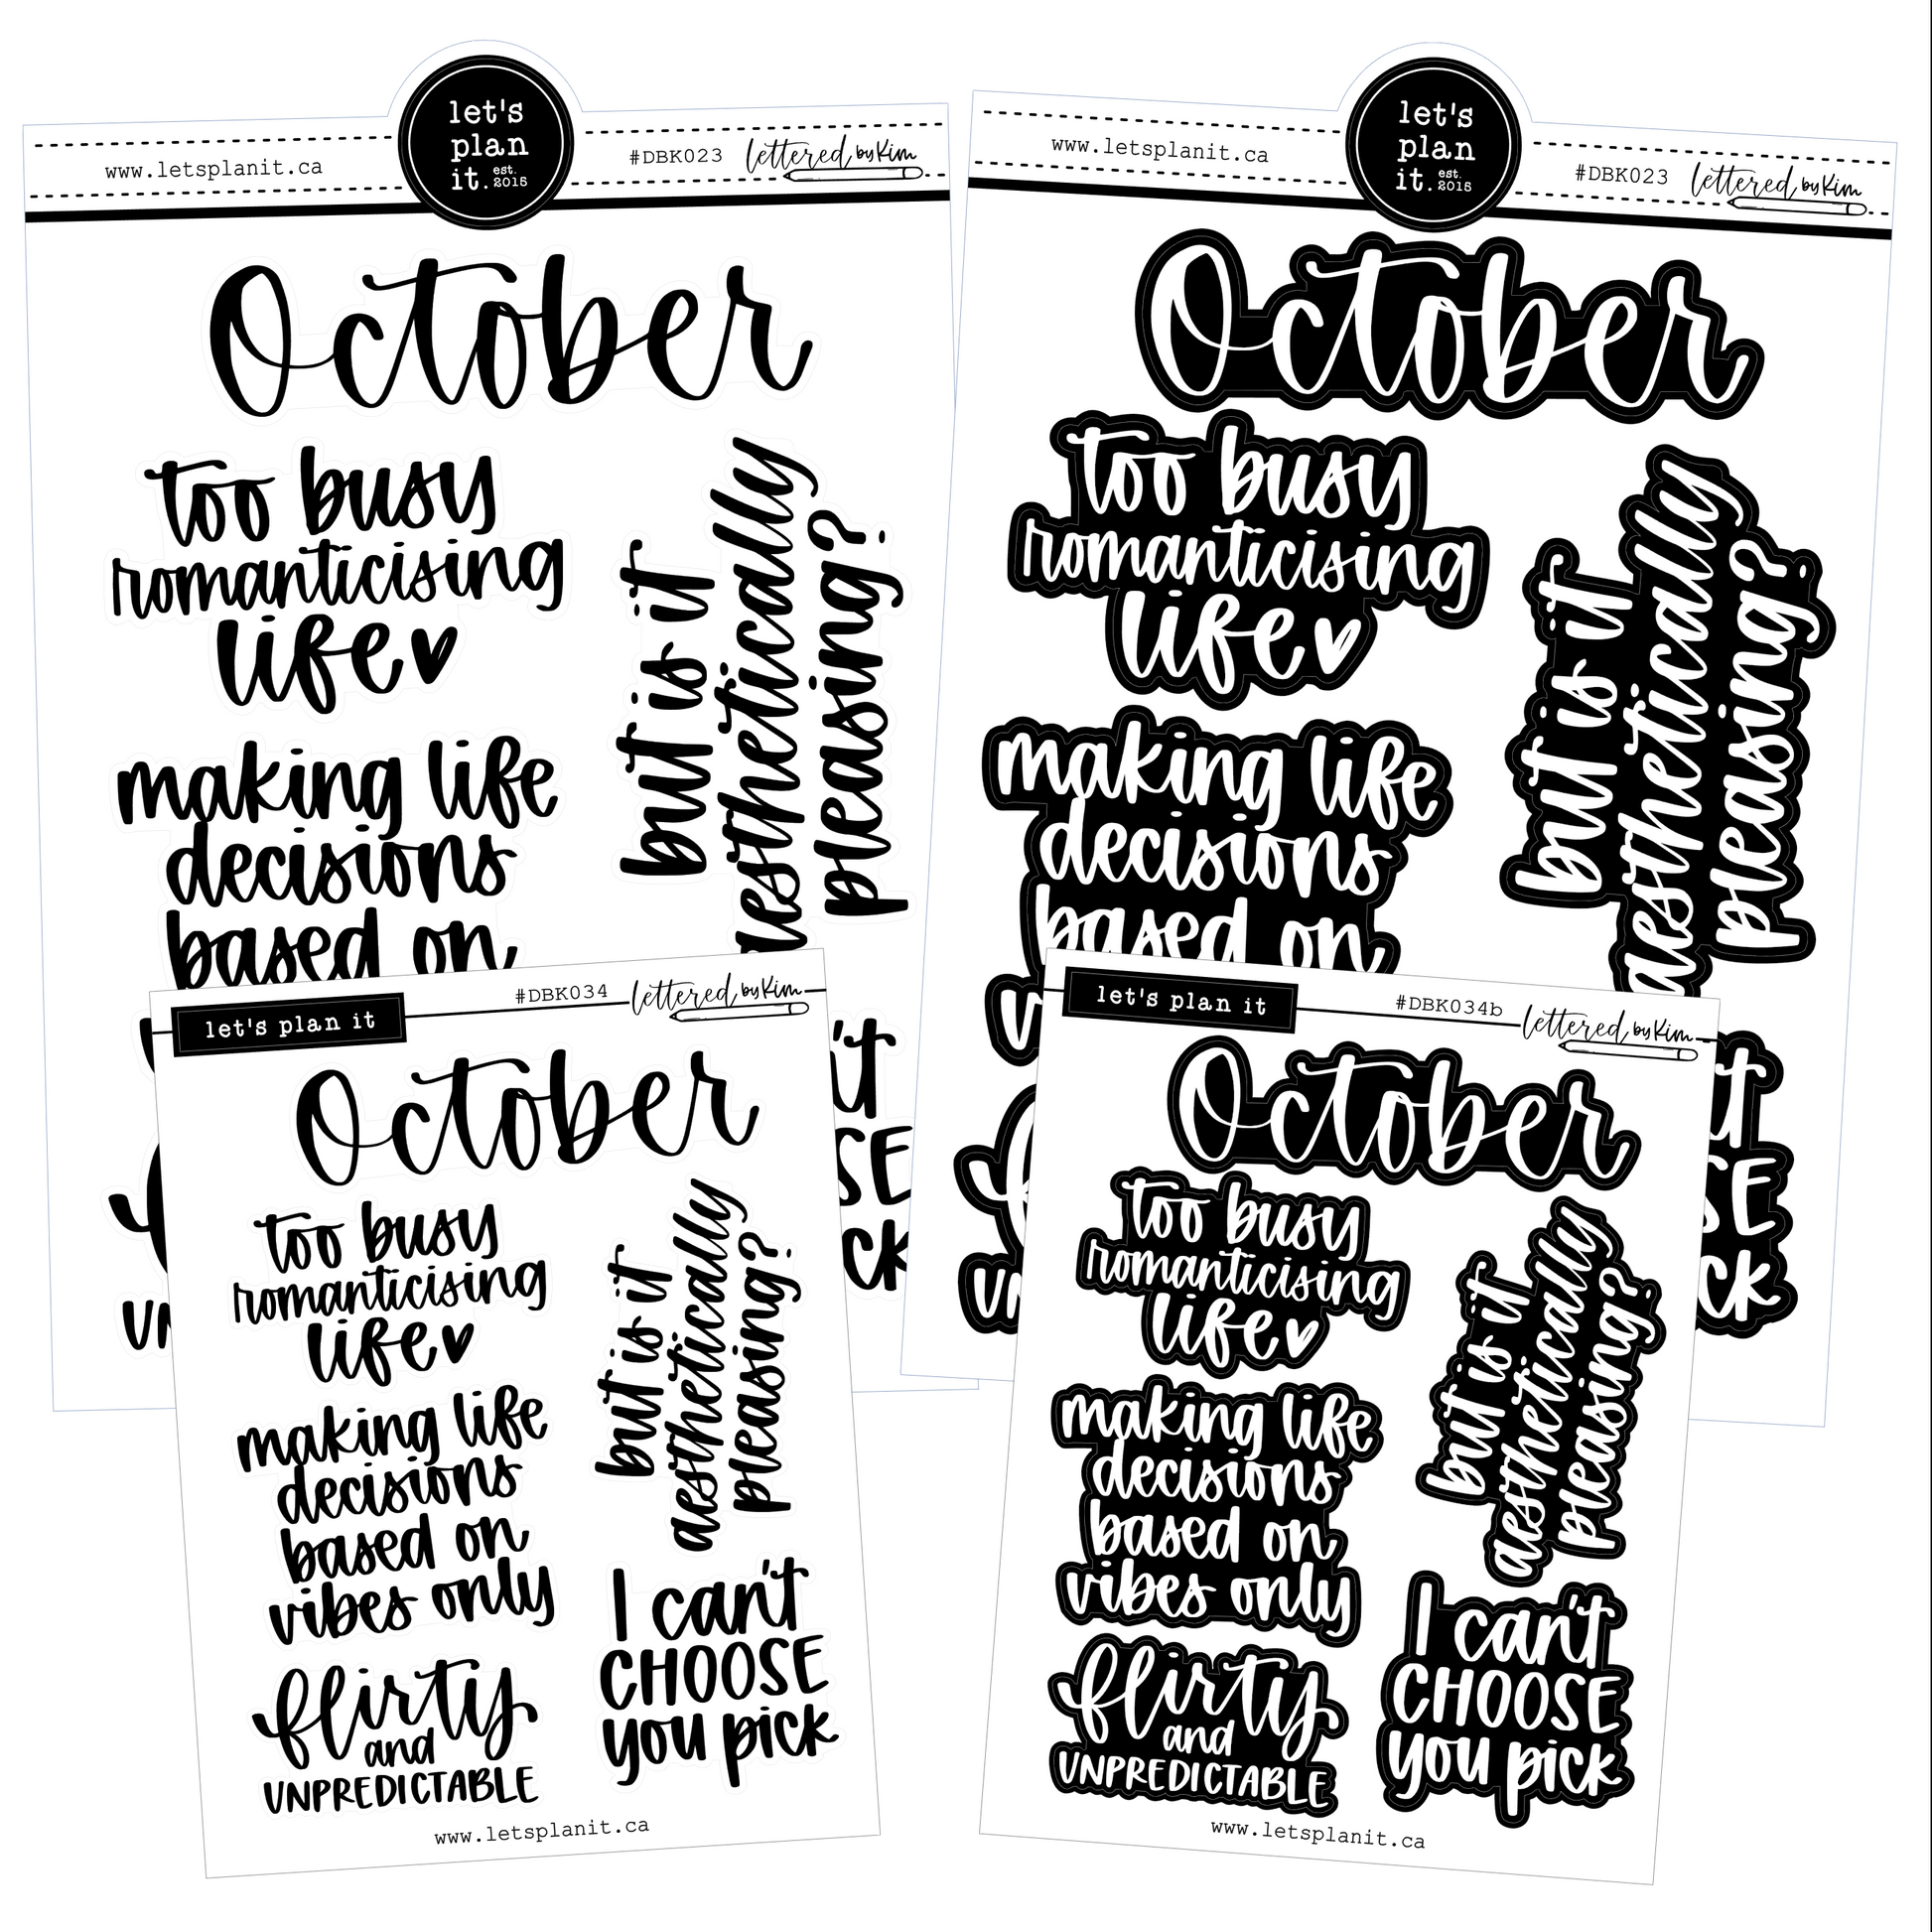 let's
plan
it. est. 2015
www.letsplanit.ca
#DBK023
lettered by Kim
October
too busy
romanticising
life
but is it
aesthetically
pleasing?
making life
decisions
based on
let's
plan
it. est. 2015
www.letsplanit.ca
#DBK023
lettered by Kim
October
too busy
romanticising
life
but is it
aesthetically
pleasing?
making life
decisions
based on
let's plan it
#DBK034
lettered by Kim
October
too busy
romanticising
life
but is it
aesthetically
pleasing?
making life
decisions
based on
vibes only
I can't
CHOOSE
you pick
flirty
and
UNPREDICTABLE
www.letsplanit.ca
let's plan it
#DBK034b
lettered by Kim
October
too busy
romanticising
life
but is it
aesthetically
pleasing?
making life
decisions
based on
vibes only
I can't
CHOOSE
you pick
flirty
and
UNPREDICTABLE
www.letsplanit.ca